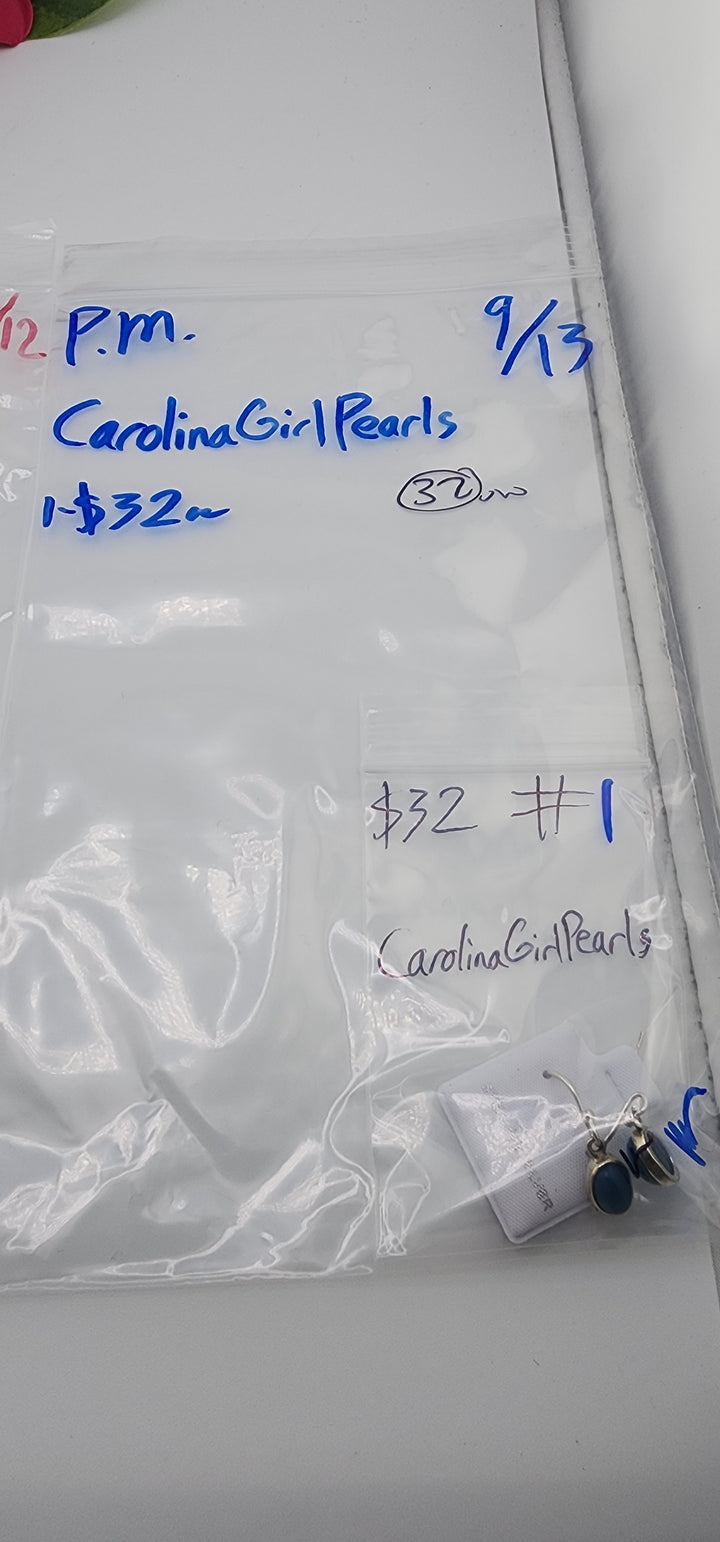 /12
P.M. 9/13
CarolinaGirlPearls
1-$32
32
$32 #1
CarolinaGirlPearls